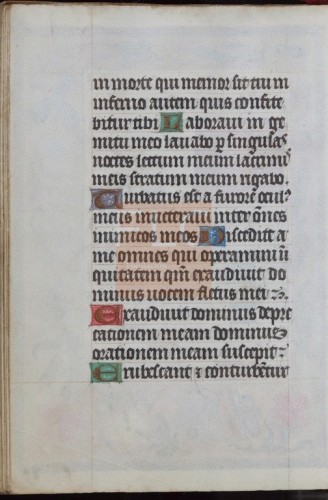 in morte qui memor sit tui in
inferno autem quis confite
bitur tibi Laboraui in ge
mitu meo lauabo p singulas
noctes lectum meum lacrimis
meis stratum meum rigabo.
Turbatus est a furore ocul⁹
meus inueteraui inter om̄es
inimicos meos Discedite a
me omnes qui operamini i
quitatem qm̄ exaudiuit do
minus uocem fletus mei
Exaudiuit dominus depre
cationem meam dominus
orationem meam suscepit
Erubescant ⁊ conturbētur